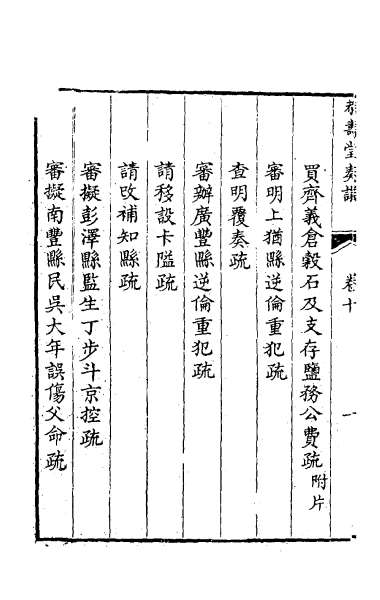 壽堂奏議
卷十
一
買齊義倉穀石及支存鹽務公費疏 附片
審明上猶縣逆倫重犯疏
查明覆奏疏
審辦廣豐縣逆倫重犯疏
請移設卡隘疏
請改補知縣疏
審擬彭澤縣監生丁步斗京控疏
審擬南豐縣民吳大年誤傷父命疏